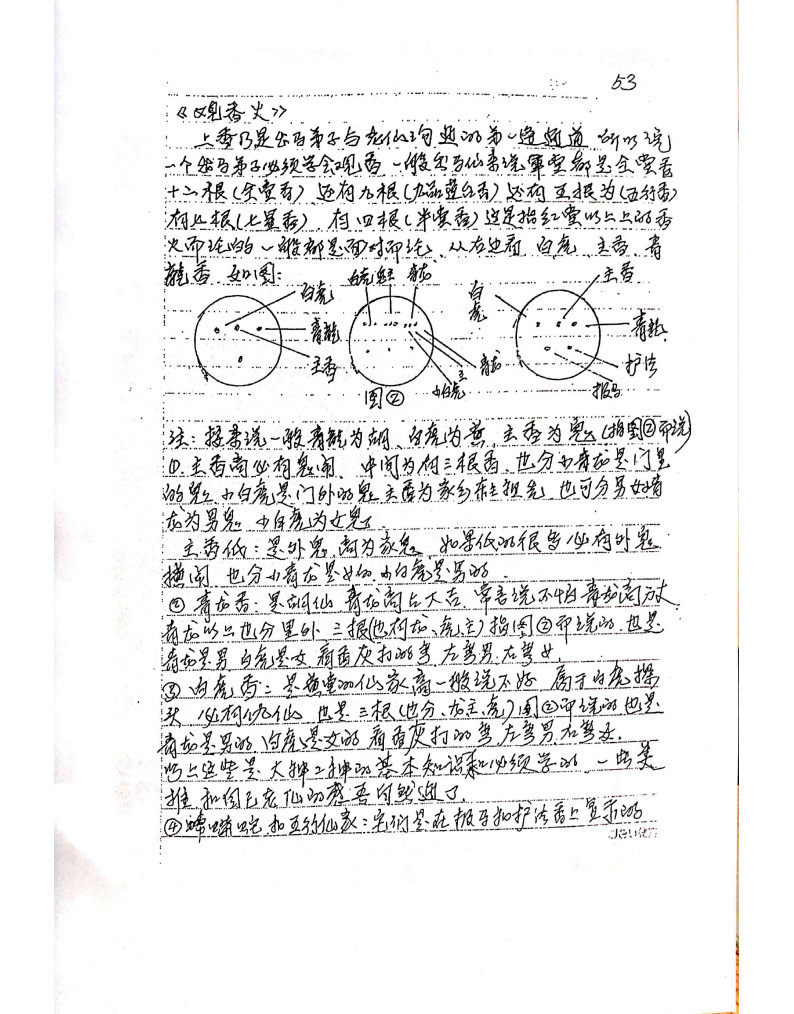 53
《观香火》
上香乃是出马弟子与老仙沟通的第一道通道 所以说
一个出马弟子必须学会观香 一般出马仙来说 堂都是全堂香
十二根(全堂香) 还有九根(九品莲台香) 还有五根为(五行香)
有七根(七星香) 有四根(半堂香) 这是指红堂以上上的香
火而论的 一般都是面对而论、从左边有 白虎 主香 青
龙香 如图:
白虎
青龙
主香
白虎
青龙
青龙
主
小白虎
图②
白虎
主香
青龙
护法
报马
注: 按来说一般青龙为胡、白虎为黄、主香为鬼(指图②而说)
①. 主香高必有鬼闹、中间为何三根香、也分小青龙是门里
的鬼 小白虎是门外的鬼 主香为家乡 祖先 也可分男女 青
龙为男鬼 小白虎为女鬼
主香低: 是外鬼 高为家鬼、如果低的很多必有外鬼
横闹 也分小青龙是女的 小白虎是男的.
② 青龙香: 是胡仙 青龙高占大吉 常言说不怕青龙高万丈
青龙以上也分里外 三根(也有龙、虎主) 指图②而说的 也是
青龙是男 白虎是女 看香灰打的弯 左弯男 右弯女
③ 白虎香: 是黄堂的仙家 高一般说不好 属于白虎探
头 必有 仙 也是三根(也分、龙主、虎) 图②而说的也是
青龙是男的 白虎是女的 看香灰打的弯 左弯男 右弯女.
以上这些是大神二神的基本知识和必须学的 一 类
推 和自己老仙的 就通了.
④ 蟒 和五 仙家: 它们是在报马和护法香上显示的